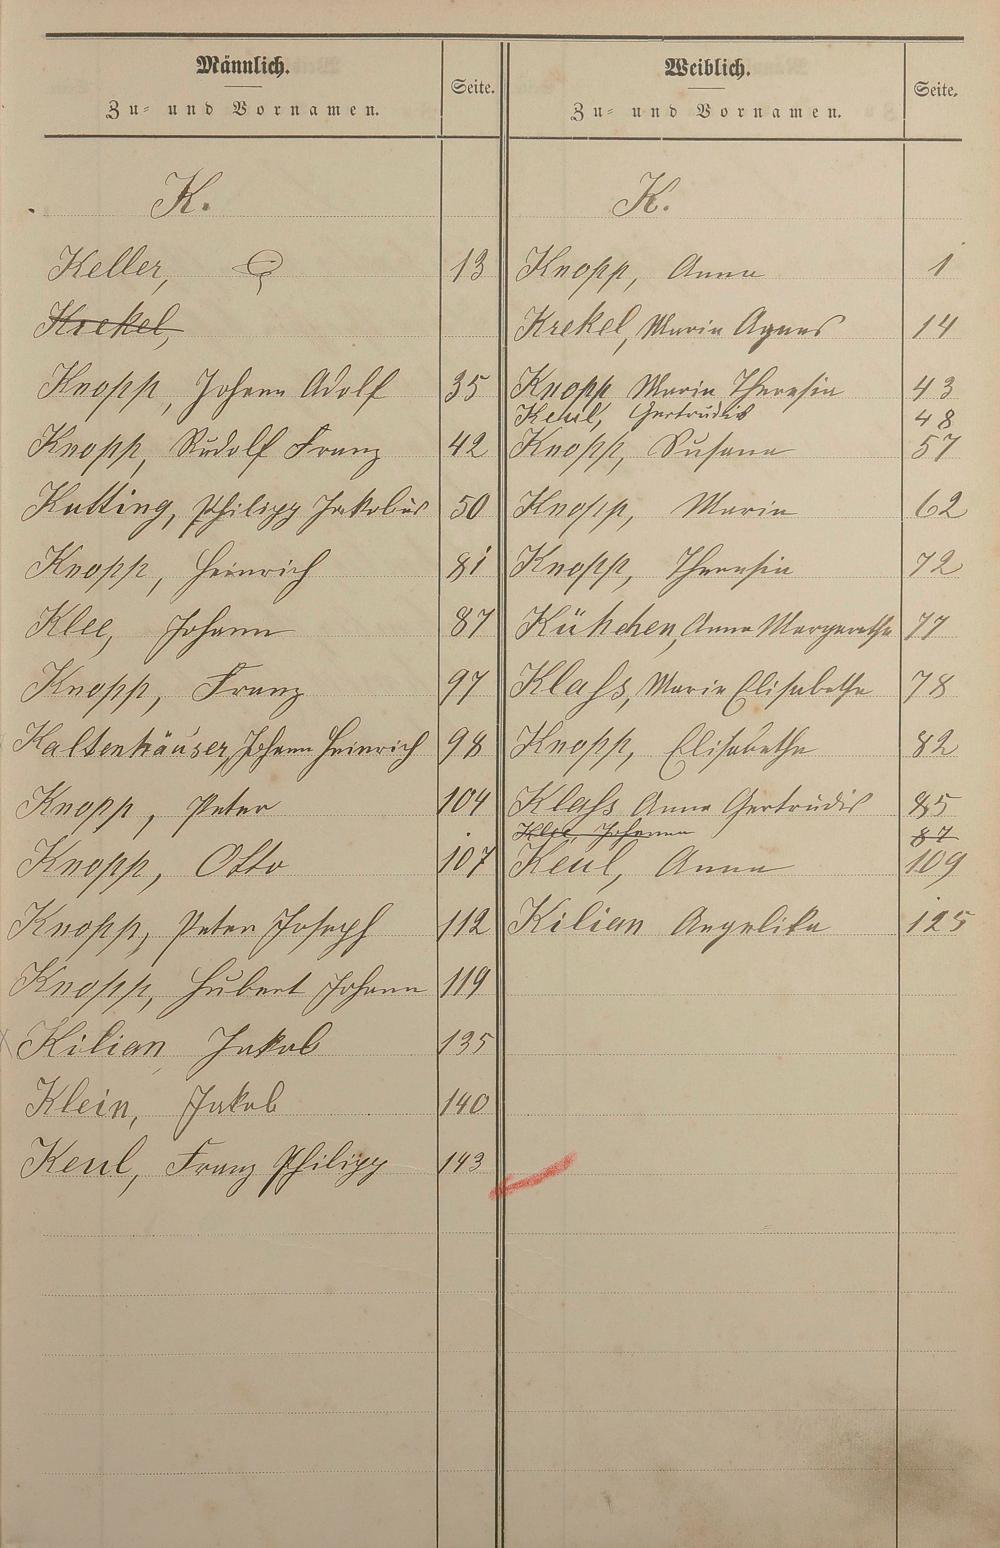 Männlich.
Zu- und Vornamen.
Seite.
Weiblich.
Zu- und Vornamen.
Seite.
K.
K.
Keller, 13
Knopp, Anna 1
Krekel,
Krekel, Maria Agnes 14
Knopp, Johann Adolf 35
Knopp Maria Theresia 43
Keul, Gertrudis 48
Knopp, Rudolf Franz 42
Knopp, Susana 57
Kutting, Philipp Jakobus 50
Knopp, Maria 62
Knopp, Heinrich 81
Knopp, Theresia 72
Klee, Johann 87
Kühchen, Anna Margaretha 77
Knopp, Franz 97
Klaß, Maria Elisabetha 78
Kaltenhäuser, Johann Heinrich 98
Knopp, Elisabetha 82
Knopp, Peter 104
Klaß Anna Gertrudis 85
Klee, Johanna 87
Knopp, Otto 107
Keul, Anna 109
Knopp, Peter Joseph 112
Kilian Angelika 125
Knopp, Hubert Johann 119
Kilian, Jakob 135
Klein, Jakob 140
Keul, Franz Philipp 143